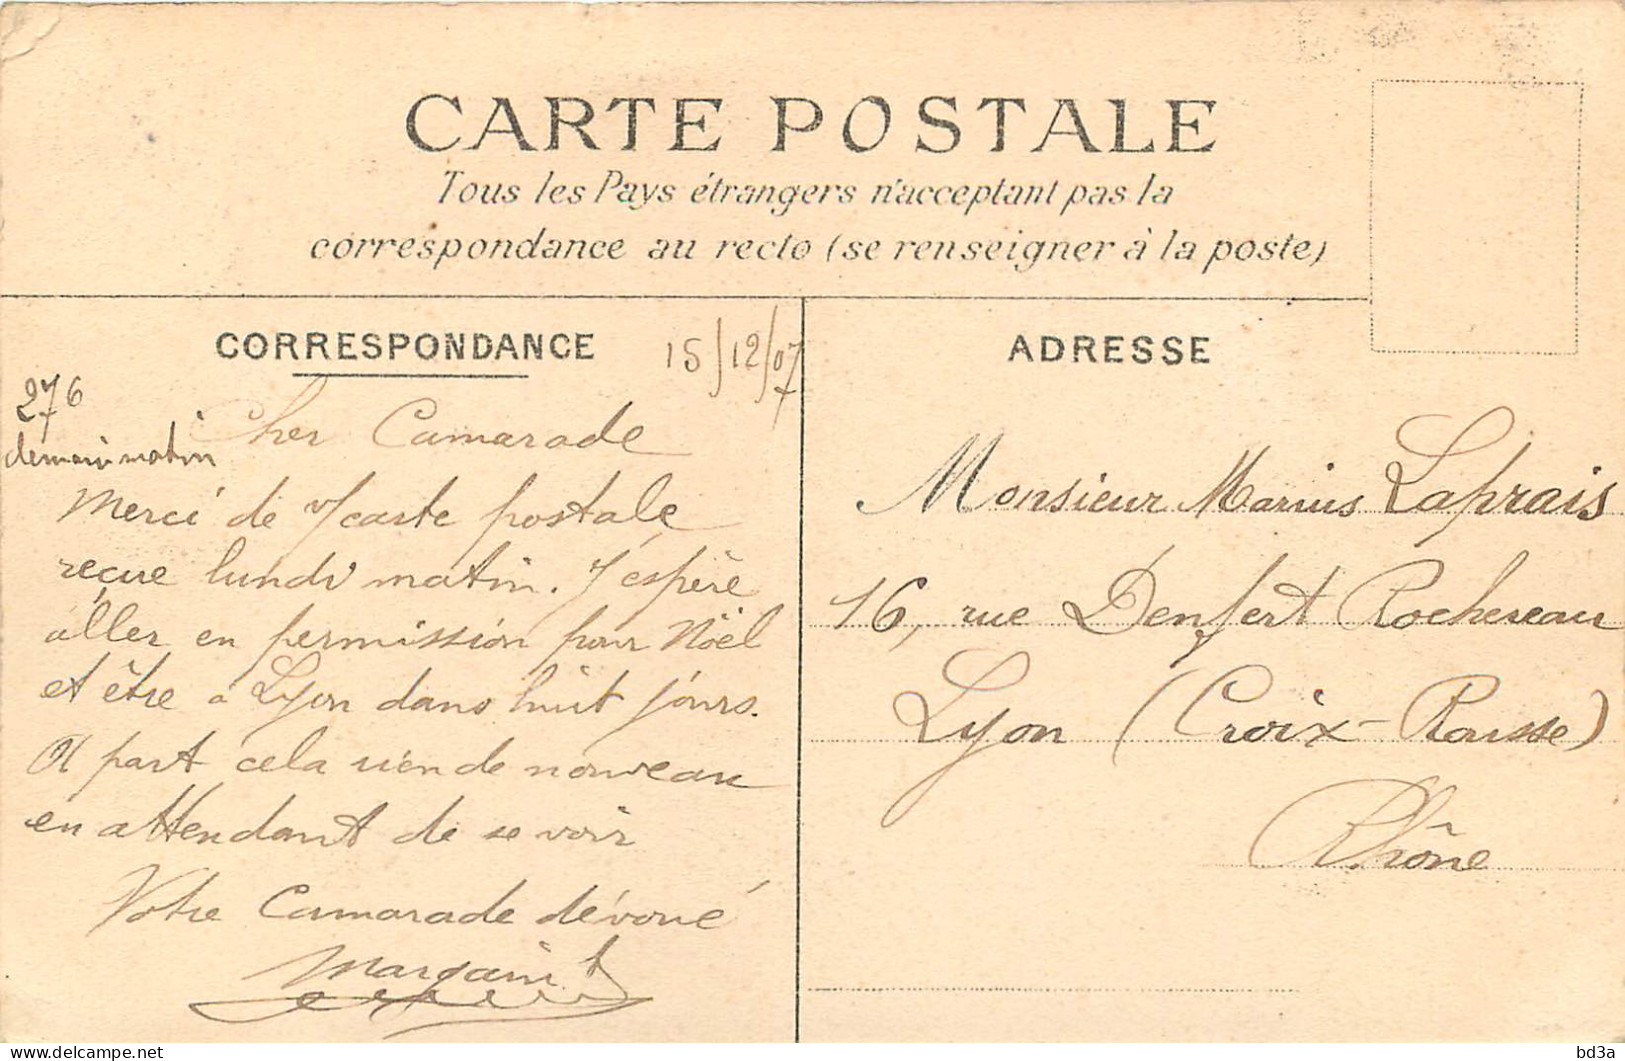 CARTE POSTALE
Tous les Pays étrangers n'acceptant pas la
correspondance au recto (se renseigner à la poste)
CORRESPONDANCE
15/12/07
276
demain matin
Cher Camarade
Merci de v/carte postale
reçue lundi matin. J'espère
aller en permission pour Noël
et être à Lyon dans huit jours.
A part cela rien de nouveau
en attendant de se voir
Votre Camarade dévoué
ADRESSE
Monsieur Marius Laprais
16, rue Denfert Rochereau
Lyon (Croix-Rousse)
Rhône
bd3a